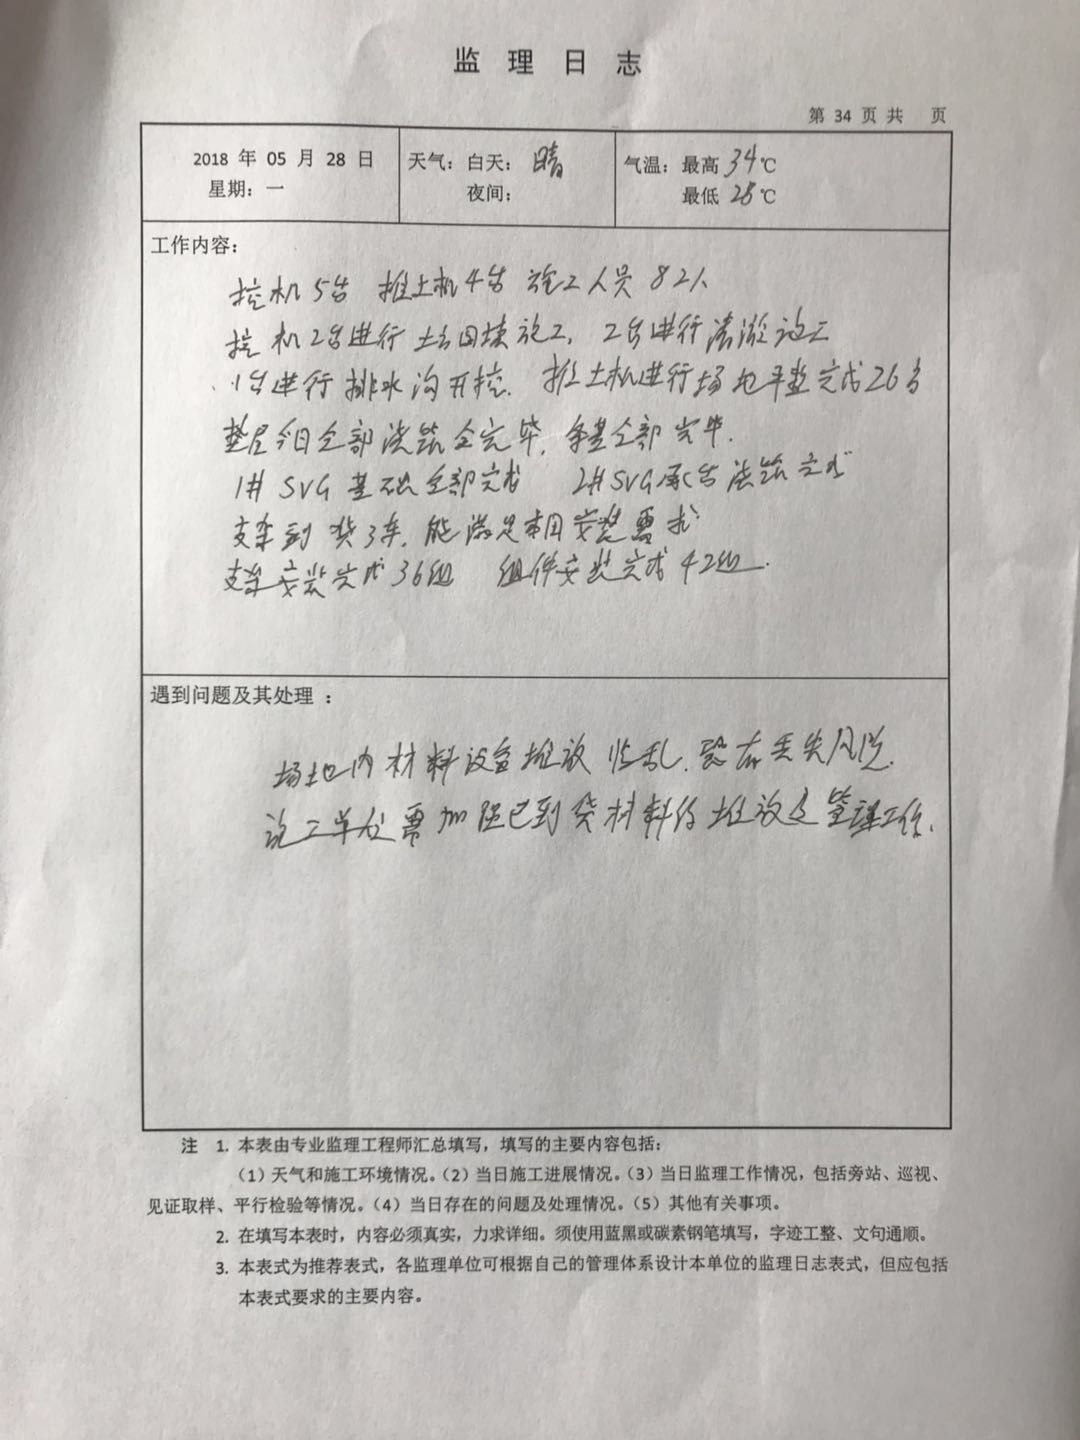 监理日志
第 34 页 共 页
2018 年 05 月 28 日
星期：一
天气：白天：晴
夜间：
气温：最高 34℃
最低 28℃
工作内容：
挖机5台 推土机4台 施工人员82人
挖机2台进行土方回填施工，2台进行清淤施工
1台进行排水沟开挖. 推土机进行场地平整完成26亩
今日全部浇筑全完毕, 全部完毕.
1# SVG 基础全部完成 2#SVG承台浇筑完成
支架到货3车, 能满足安装需求
支架安装完成36组 组件安装完成42组.
遇到问题及其处理 ：
场地内材料设备堆放 乱, 恐有丢失风险.
施工单位需加强已到货材料的堆放及管理工作.
注 1. 本表由专业监理工程师汇总填写，填写的主要内容包括：
（1）天气和施工环境情况。（2）当日施工进展情况。（3）当日监理工作情况，包括旁站、巡视、
见证取样、平行检验等情况。（4）当日存在的问题及处理情况。（5）其他有关事项。
2. 在填写本表时，内容必须真实，力求详细。须使用蓝黑或碳素钢笔填写，字迹工整、文句通顺。
3. 本表式为推荐表式，各监理单位可根据自己的管理体系设计本单位的监理日志表式，但应包括
本表式要求的主要内容。